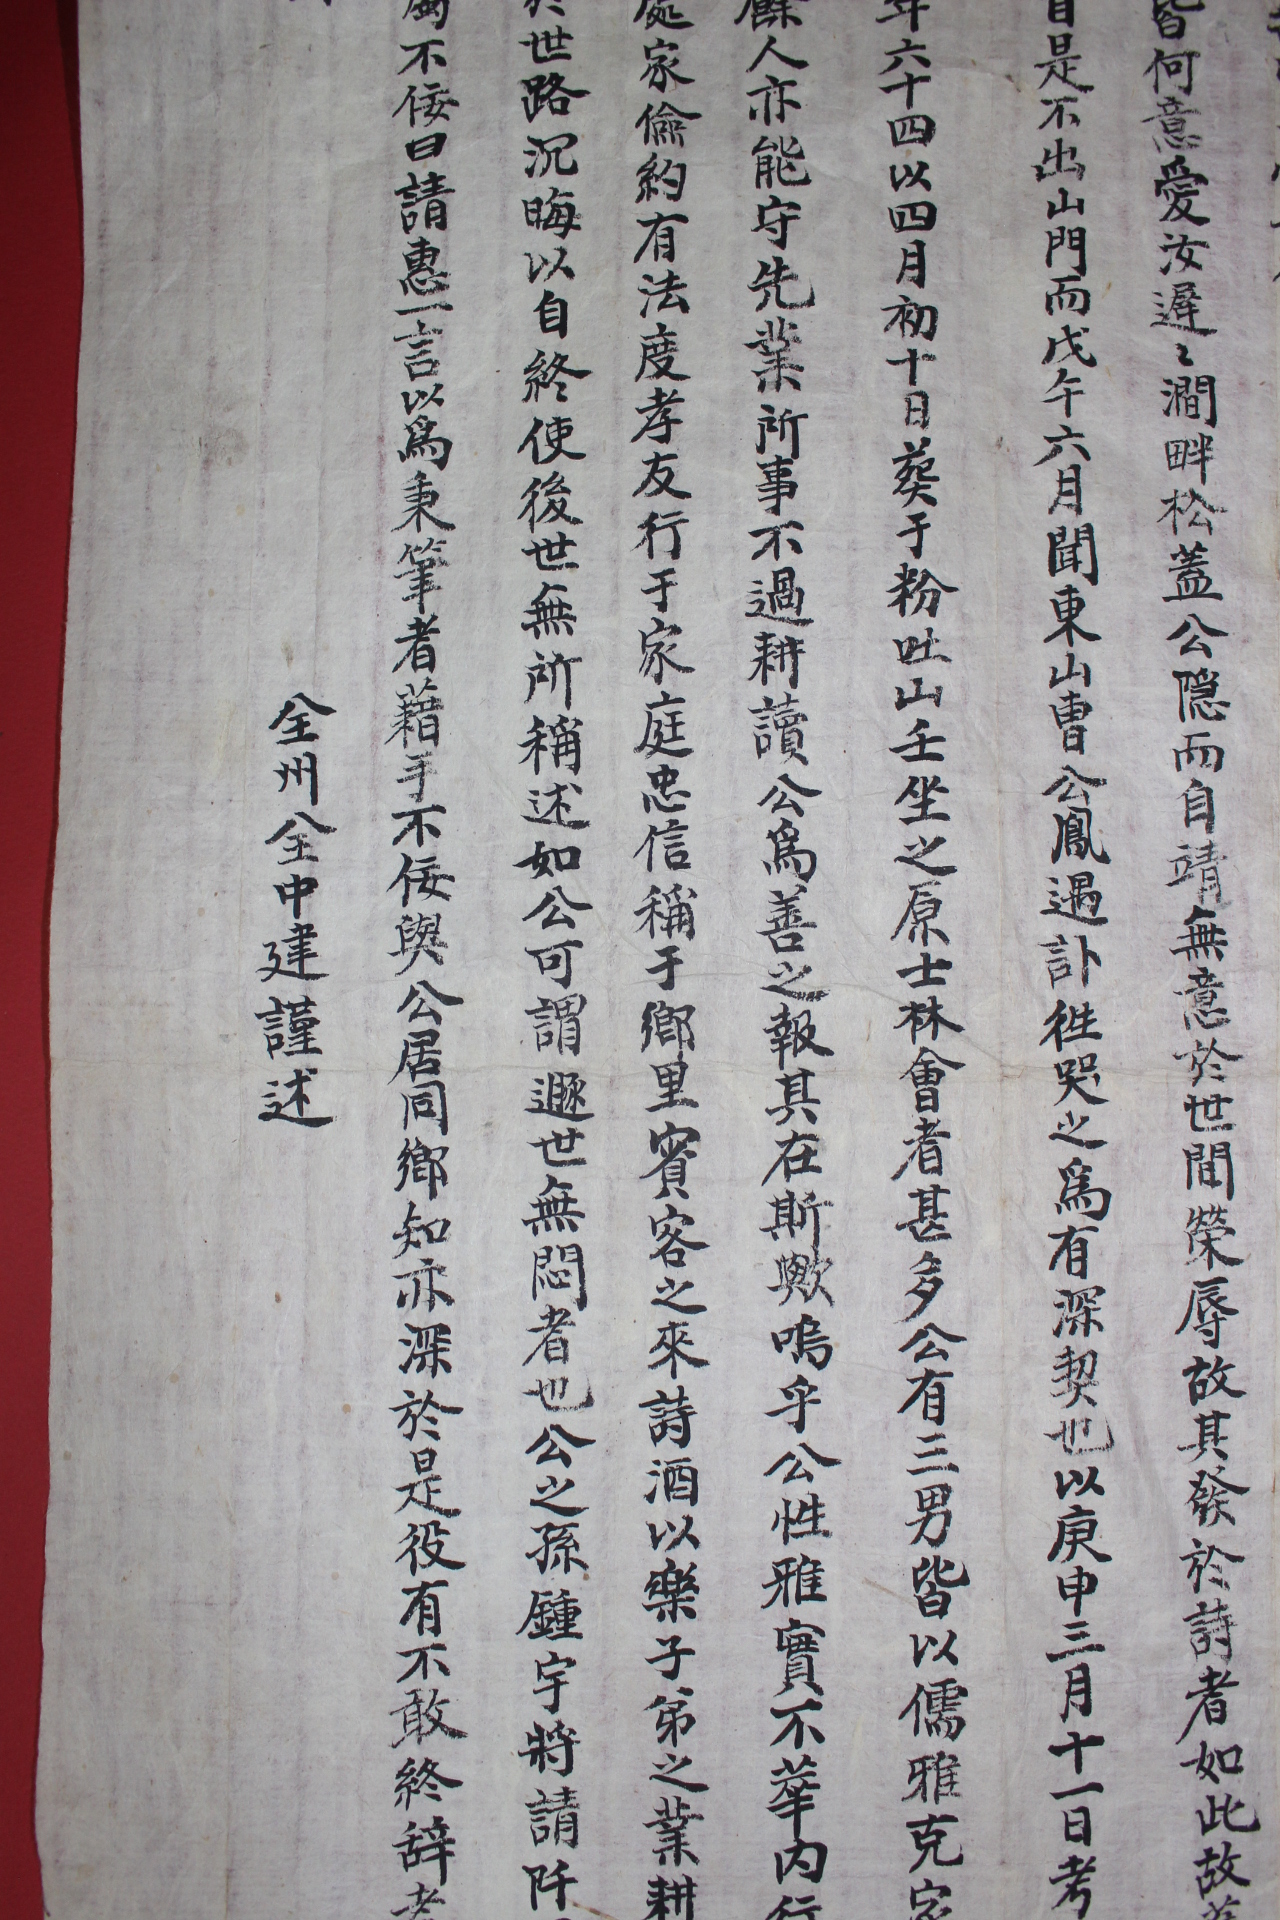 皆何意愛汝遲〻澗畔松蓋公隱而自靖無意於世間榮辱故其發於詩者如此故
自是不出山門而戊午六月聞東山曺公鳳遇訃徃哭之爲有深契也以庚申三月十一日考
年六十四以四月初十日葬于粉吐山壬坐之原士林會者甚多公有三男皆以儒雅克家
餘人亦能守先業所事不過耕讀公爲善之報其在斯歟嗚乎公性雅實不華內行
處家儉約有法度孝友行于家庭忠信稱于鄕里賓客之來詩酒以樂子弟之業耕
於世路沉晦以自終使後世無所稱述如公可謂遯世無悶者也公之孫鍾宇將請阡
不佞曰請惠一言以爲秉筆者藉手不佞與公居同鄕知亦深於是役有不敢終辞者
全州全中建謹述